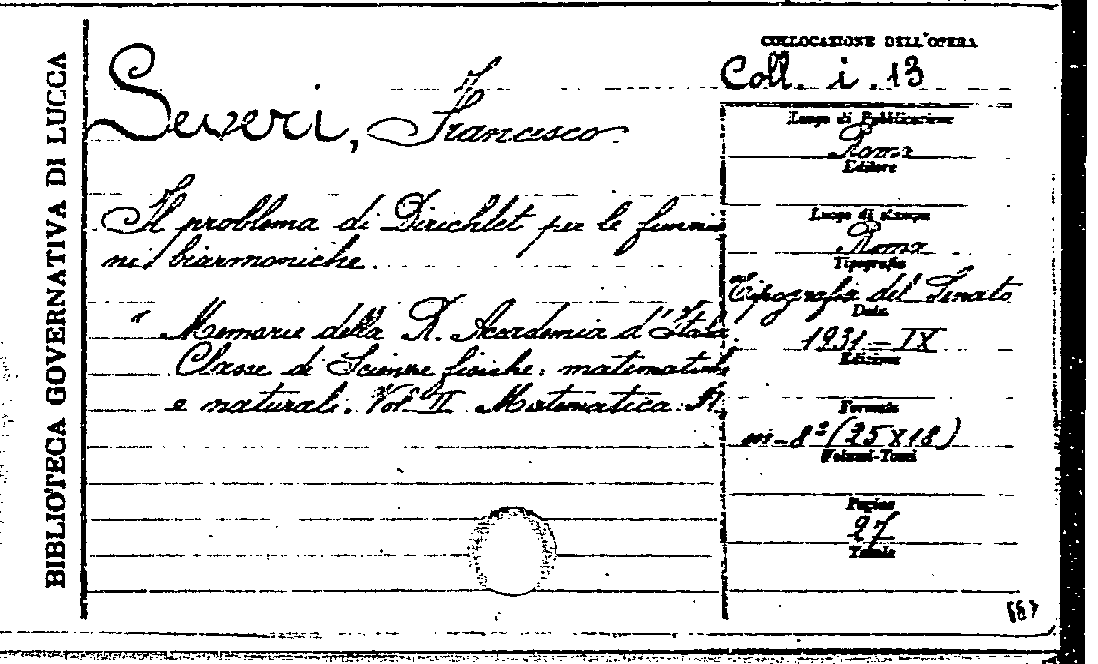 BIBLIOTECA GOVERNATIVA DI LUCCA
COLLOCAZIONE DELL'OPERA
Coll. i. 13
Severi, Francesco
Luogo di Pubblicazione
Roma
Editore
Il problema di Dirichlet per le funzio
ni biarmoniche.
Luogo di stampa
Roma
Tipografia
Tipografia del Senato
Data
1931 - IX
Edizione
" Memorie della R. Accademia d'Italia.
Classe di Scienze fisiche, matematiche
e naturali. Vol. II Matematica N.
Formato
in-8° (25x18)
Volumi-Tomi
Pagine
27
Tavole